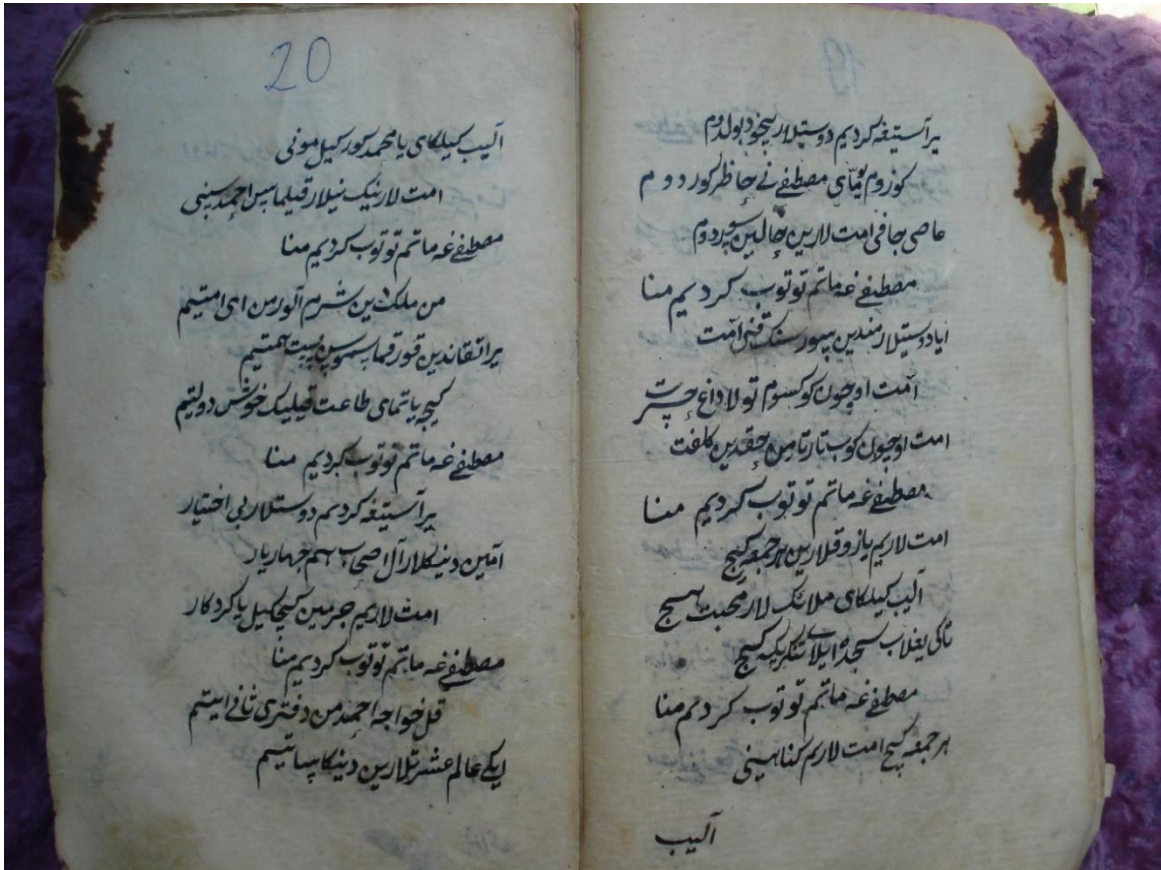 19
یر آستیغه کردیم دوستلار بیخود بولدوم
کوزوم یومای مصطفے نے حاظر کوردوم
عاصی جافی امت لارین حالین سوردوم
مصطفے غه ماتم توتوب کردیم منا
ایا دوستلار مندین قنی امت
امت اوچون کوکسوم تولا داغ حسرت
امت اوچون کوب تارتامن حقدین کلفت
مصطفے غه ماتم توتوب کردیم منا
امت لاریم یازوقلارین هر جمعه کیج
آلیب کیلکای ملائک لار محبت هیج
تاکی یغلاب سجده ایلاب تنکریکه کیج
مصطفے غه ماتم توتوب کردیم منا
هر جمعه کیج امت لاریم کناهینی
آلیب
20
آلیب کیلکای یا محمد کورکیل مونی
امت لارنیک نیلار قیلمایس احمد سینی
مصطفے غه ماتم توتوب کردیم منا
من ملک دین شرم آلورمن ای امتیم
یراتقاندین قورقماسموسن همتیم
کیجه یاتمای طاعت قیلیک خوش دولتیم
مصطفے غه ماتم توتوب کردیم منا
یر آستیغه کردیم دوستلار بی اختیار
آمین دینکلار آل اصحاب هم چهار یار
امت لاریم جرمین کیچکیل یا کردکار
مصطفے غه ماتم توتوب کردیم منا
قل خواجه احمد من دفتری ثانے ایتیم
ایکے عالم عشرتلارین دینکا ساتیم